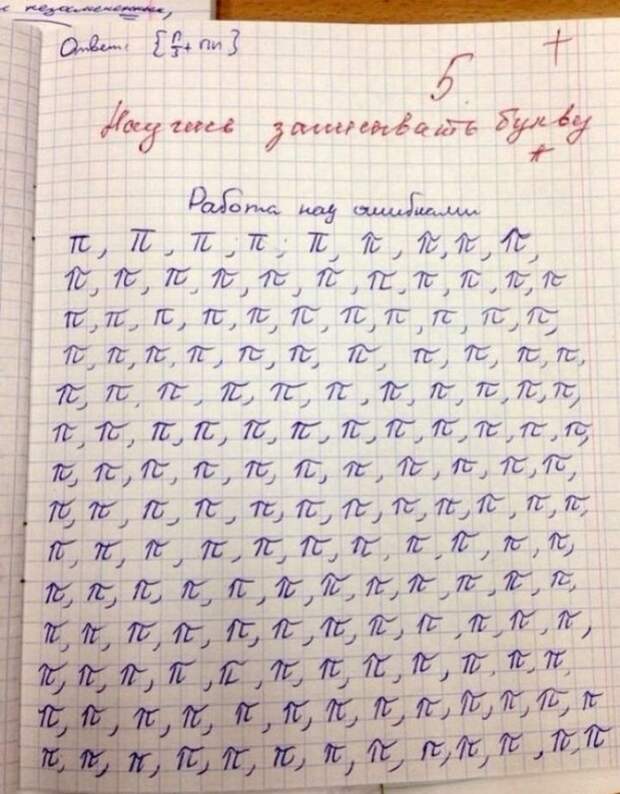 Ответ: {п/3 + пn}
5. +
Научись записывать букву
π
Работа над ошибками
π, π, π, π, π, π, π, π, π,
π, π, π, π, π, π, π, π, π, π, π
π, π, π, π, π, π, π, π, π, π, π,
π, π, π, π, π, π, π, π, π, π, π,
π, π, π, π, π, π, π, π, π, π, π,
π, π, π, π, π, π, π, π, π, π, π, π,
π, π, π, π, π, π, π, π, π, π, π,
π, π, π, π, π, π, π, π, π, π, π, π,
π, π, π, π, π, π, π, π, π, π, π,
π, π, π, π, π, π, π, π, π, π, π, π,
π, π, π, π, π, π, π, π, π, π, π, π,
π, π, π, π, π, π, π, π, π, π, π, π
π, π, π, π, π, π, π, π, π, π, π, π, π
π, π, π, π, π, π, π, π, π, π, π, π, π